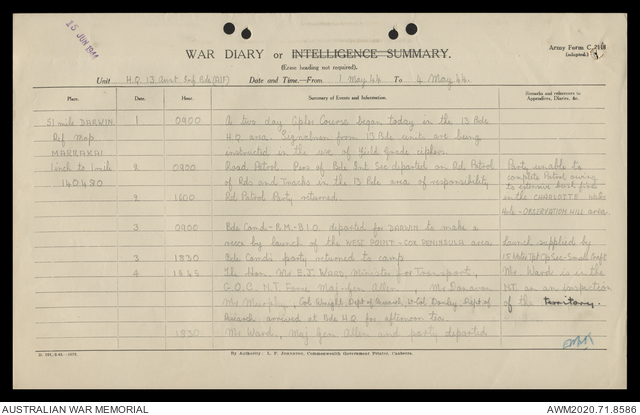 15 JUN 1944
WAR DIARY or INTELLIGENCE SUMMARY.
(Erase heading not required).
Army Form C.2118
(adapted.)
Unit H.Q. 13 Aust Inf Bde (AIF) Date and Time—From 1 May 44 To 4 May 44.
Place. Date. Hour. Summary of Events and Information. Remarks and references to Appendices, Diaries, &c.
51 mile DARWIN 1 0900 A two day Cipher Course began today in the 13 Bde
Ref Map H.Q area. Signalmen from 13 Bde units are being
MARRAKAI instructed in the use of Field Grade ciphers.
1 inch to 1 mile 2 0900 Road Patrol Pers of Bde Int Sec departed on Rd Patrol Party unable to
140480 of Rds and Tracks in the 13 Bde area of responsibility complete Patrol owing
to extensive bush fires
2 1600 Rd Patrol Party returned. in the CHARLOTTE
Hole - OBSERVATION HILL area
3 0900 Bde Comd - B.M - B.I.O departed for DARWIN to make a
recce by launch of the WEST POINT - COX PENINSULA area launch supplied by
3 1830 Bde Comd's party returned to camp
4 1545 The Hon. Mr E.J. WARD, Minister for Transport, Mr. Ward is in the
G.O.C. N.T. Force Maj-Gen Allen, Mr Donavan N.T. on an inspection
Mr Murphy, Col Wright, Dept of Research, Lt-Col Conley, Dept of of the territory.
Research arrived at Bde H.Q for afternoon tea
1830 Mr Ward, Maj Gen Allen and party departed
By Authority: L. F. Johnston, Commonwealth Government Printer, Canberra.
AUSTRALIAN WAR MEMORIAL
AWM2020.71.8586